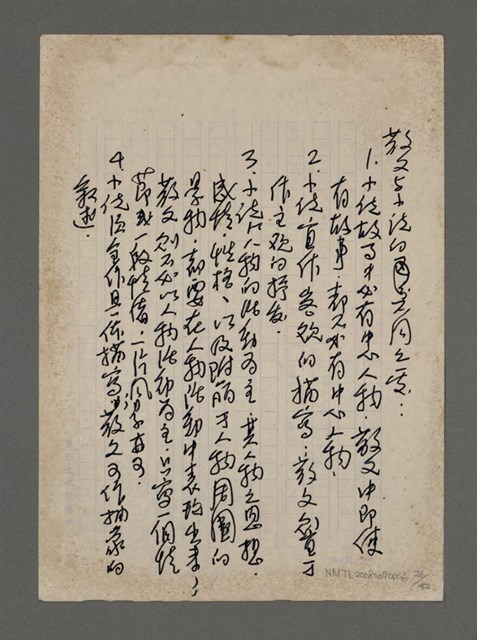 散文与小説的異同之處：
1. 小説故事中必有中心人物，散文中即使
有故事，却不必有中心人物，
2. 小説宜作客觀的描寫，散文宜于
作主觀的抒发．
3. 小説以人物的活動為主，其人物之思想．
感情、性格、以及附丽于人物周圍的
景物，都要在人物活動中表現出来；
散文則不必以人物活動為主，只寫一個情
節或一般情绪，一片風景亦可．
4. 小説須全作具体描寫，散文可作抽象的
敘述．
NMTL20080070006 26/42